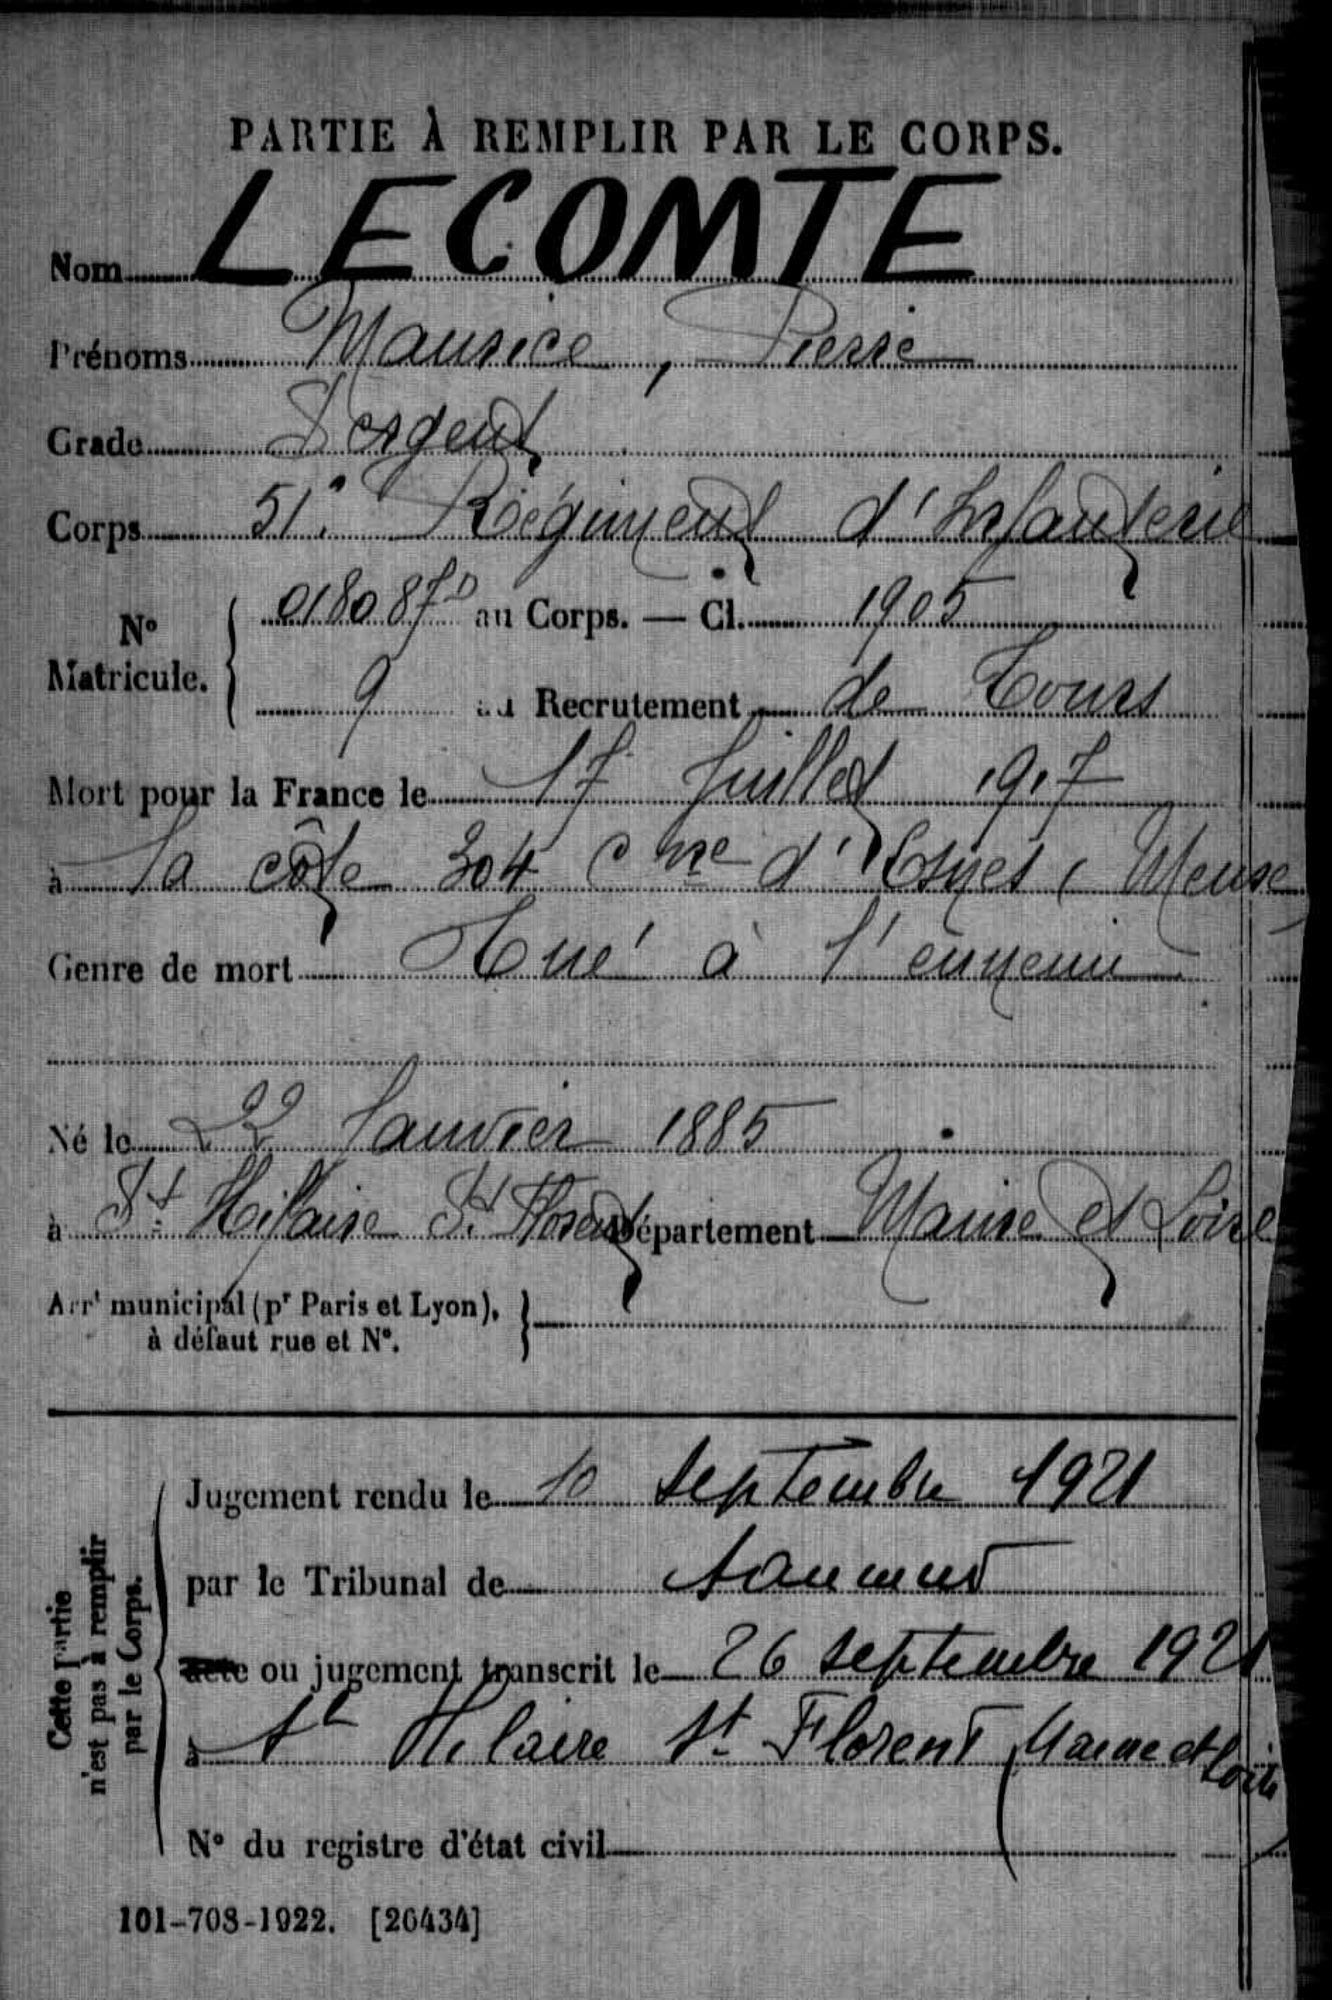 PARTIE À REMPLIR PAR LE CORPS.
Nom LECOMTE
Prénoms Maurice, Pierre
Grade Sergent
Corps 51e Régiment d'Infanterie
N° Matricule. { 018087 au Corps. — Cl. 1905
9 au Recrutement de Tours
Mort pour la France le 17 Juillet 1917
à la côte 304 Cne d'Esnes (Meuse)
Genre de mort Tué à l'ennemi
Né le 22 Janvier 1885
à St Hilaire St Florent Département Maine et Loire
Arrt municipal (pr Paris et Lyon), à défaut rue et N°. }
Cette Partie n'est pas à remplir par le Corps.
Jugement rendu le 10 septembre 1921
par le Tribunal de Saumur
acte ou jugement transcrit le 26 septembre 1921
à St Hilaire St Florent (Maine et Loire)
N° du registre d'état civil
101-708-1922. [26434]